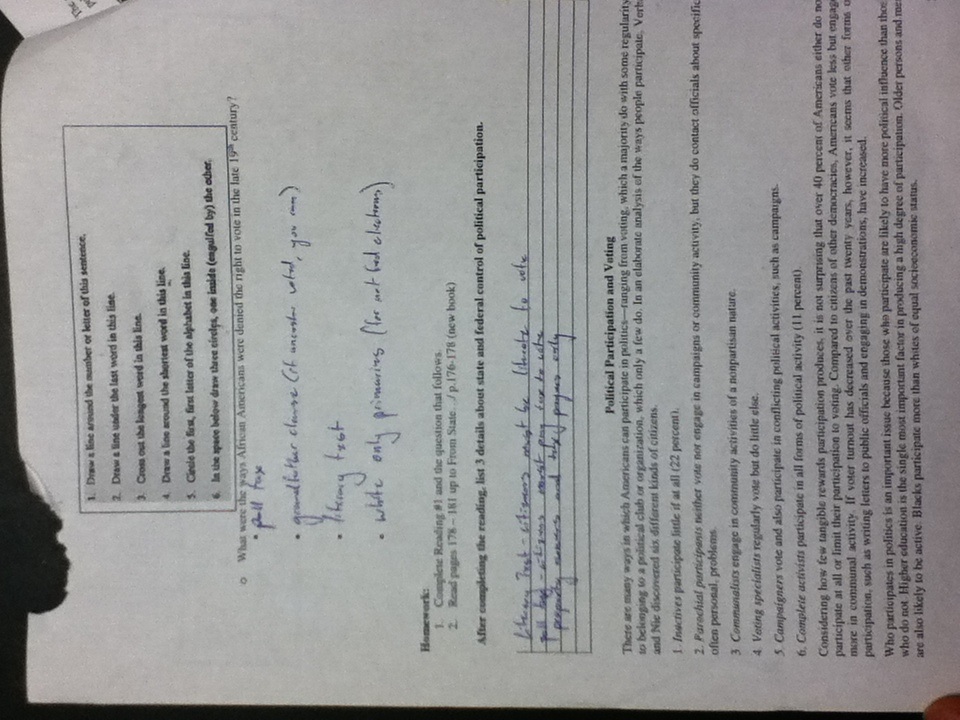 1. Draw a line around the number or letter of this sentence.
2. Draw a line under the last word in this line.
3. Cross out the longest word in this line.
4. Draw a line around the shortest word in this line.
5. Circle the first, first letter of the alphabet in this line.
6. In the space below draw three circles, one inside (engulfed by) the other.
The
o What were the ways African Americans were denied the right to vote in the late 19th century?
• poll tax
• grandfather clause (if ancestor voted, you can)
• literacy test
• white only primaries (for not fed elections)
Homework:
1. Complete Reading #1 and the question that follows.
2. Read pages 178 – 181 up to From State.../ p.176-178 (new book)
After completing the reading, list 3 details about state and federal control of political participation.
Literacy Test - citizens must be literate to vote
poll tax - citizens must pay tax to vote
property owners and tax payers only
Political Participation and Voting
There are many ways in which Americans can participate in politics—ranging from voting, which a majority do with some regularity
to belonging to a political club or organization, which only a few do. In an elaborate analysis of the ways people participate, Verb
and Nie discovered six different kinds of citizens.
1. Inactives participate little if at all (22 percent).
2. Parochial participants neither vote nor engage in campaigns or community activity, but they do contact officials about specific
often personal, problems.
3 Communalists engage in community activities of a nonpartisan nature.
4. Voting specialists regularly vote but do little else.
5. Campaigners vote and also participate in conflicting political activities, such as campaigns.
6. Complete activists participate in all forms of political activity (11 percent).
Considering how few tangible rewards participation produces, it is not surprising that over 40 percent of Americans either do no
participate at all or limit their participation to voting. Compared to citizens of other democracies, Americans vote less but engag
more in communal activity. If voter turnout has decreased over the past twenty years, however, it seems that other forms o
participation, such as writing letters to public officials and engaging in demonstrations, have increased.
Who participates in politics is an important issue because those who participate are likely to have more political influence than thos
who do not. Higher education is the single most important factor in producing a high degree of participation. Older persons and me
are also likely to be active. Blacks participate more than whites of equal socioeconomic status.